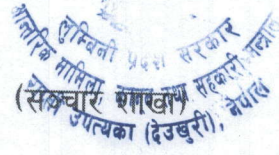 लुम्बिनी प्रदेश सरकार
आन्तरिक मामिला, कानून तथा सहकारी मन्त्रालय
(सञ्चार शाखा)
उपत्यका (देउखुरी), नेपाल